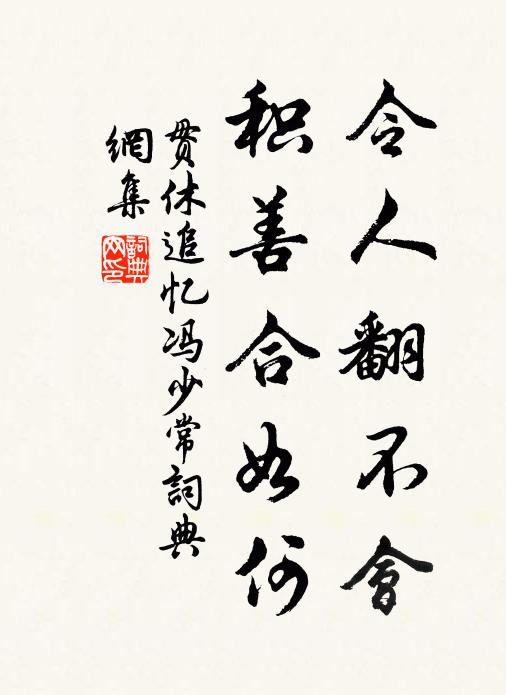 令人翻不會
积善合如何
贯休追忆冯少常詞典
網集
詞典
网印